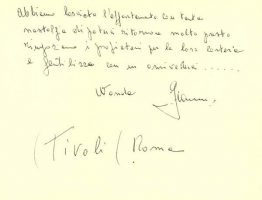 Abbiamo lasciato l'appartamento con tanta
nostalgia di poterci ritornare molto presto
ringraziamo i proprietari per la loro cortesia
e gentilezza con un arrivederci ......
Wanda Gianni
(Tivoli / Roma